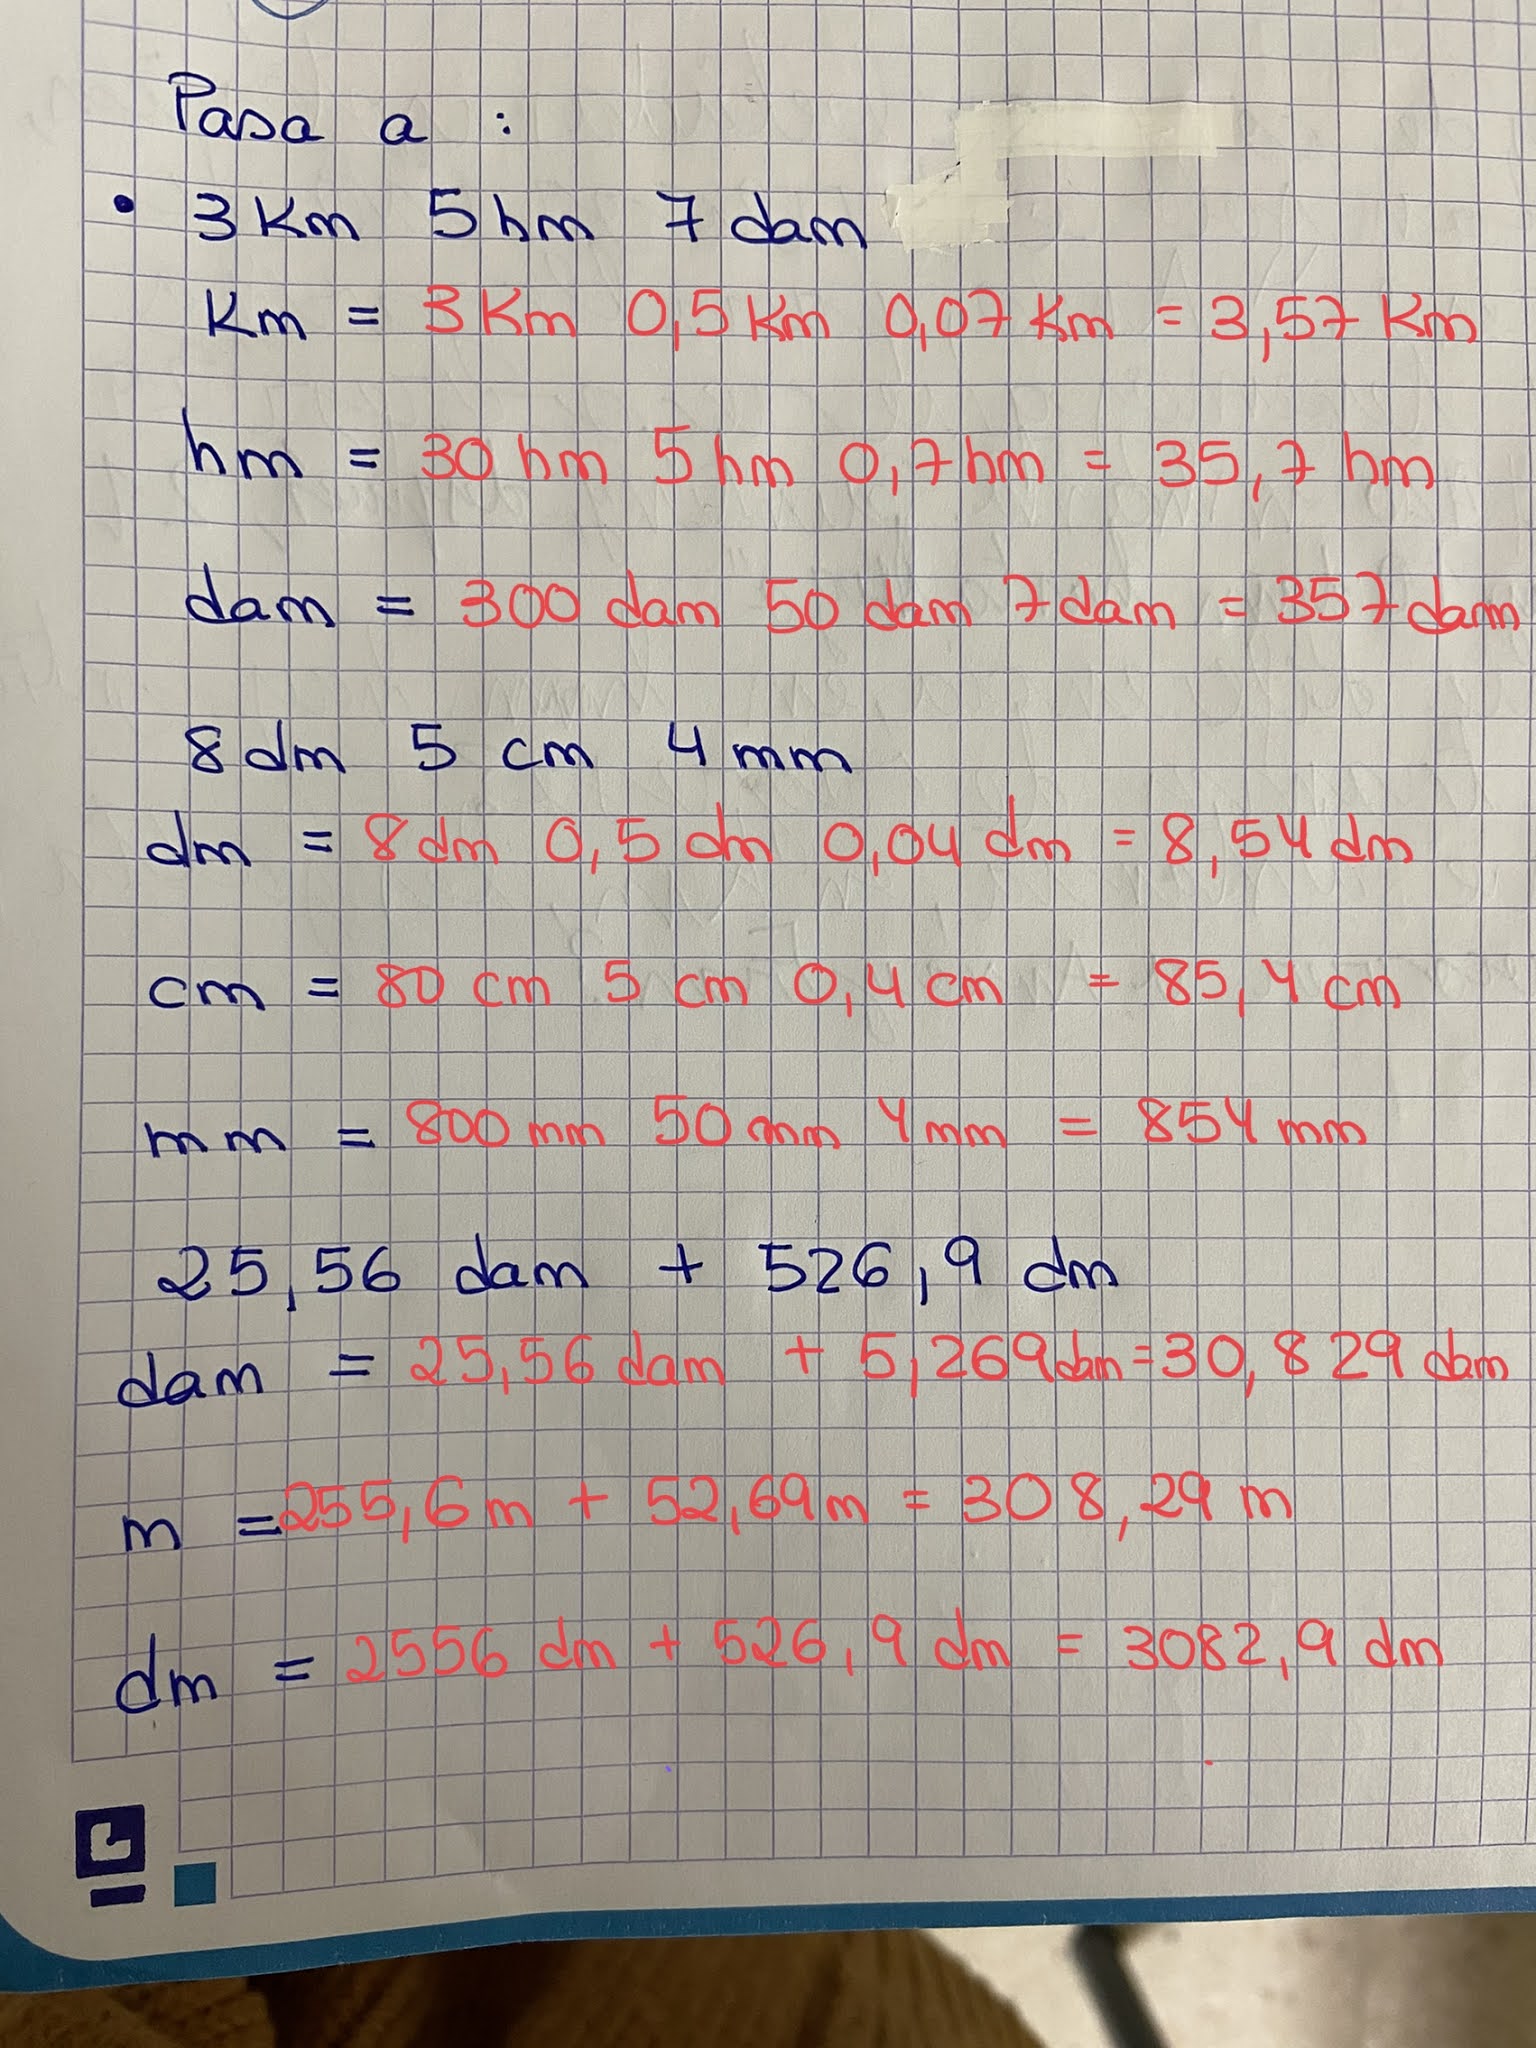 Pasa a :
• 3 Km 5 hm 7 dam
Km = 3 Km 0,5 Km 0,07 Km = 3,57 Km
hm = 30 hm 5 hm 0,7 hm = 35,7 hm
dam = 300 dam 50 dam 7 dam = 357 dam
8 dm 5 cm 4 mm
dm = 8 dm 0,5 dm 0,04 dm = 8,54 dm
cm = 80 cm 5 cm 0,4 cm = 85,4 cm
mm = 800 mm 50 mm 4 mm = 854 mm
25,56 dam + 526,9 dm
dam = 25,56 dam + 5,269 dam = 30,829 dam
m = 255,6 m + 52,69 m = 308,29 m
dm = 2556 dm + 526,9 dm = 3082,9 dm